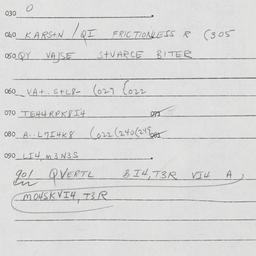 030 0
040 KARSTN / QI FRICTIONLESS R (305
050 QY VAJSE S+VARCE BITER
060 VA+.. S+L8- (027 (022
070 TEH4RPK8I4
080 A..L7I4K8 (022 (240 (245
090 LI4, M3N3S
901 QVERTL 8I4, T3R VI4 A
MO4SKVI4, T3R